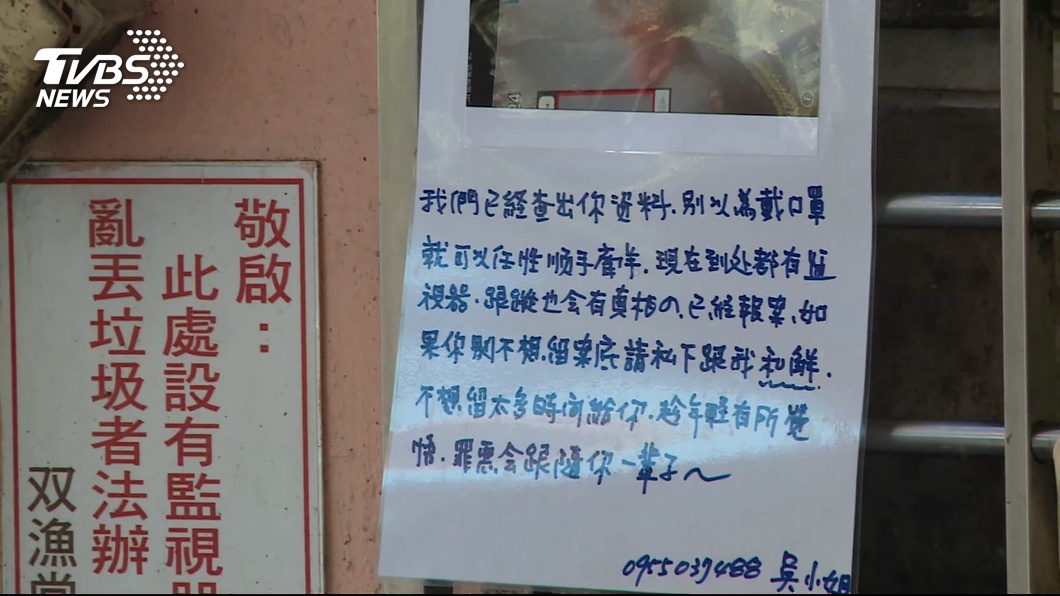 TVBS
NEWS
敬啟：
此處設有監視
亂丟垃圾者法辦
双漁尚
24
我們已經查出你資料.別以為戴口罩
就可以任性順手牽羊.現在到处都有监
視器.跟蹤也会有真相の.已經報案、如
果你別不想.留案底請私下跟我和解.
不想留太多時间給你.趁年輕有所覺
悟.罪惡会跟隨你一輩子～
0955037488 吳小姐